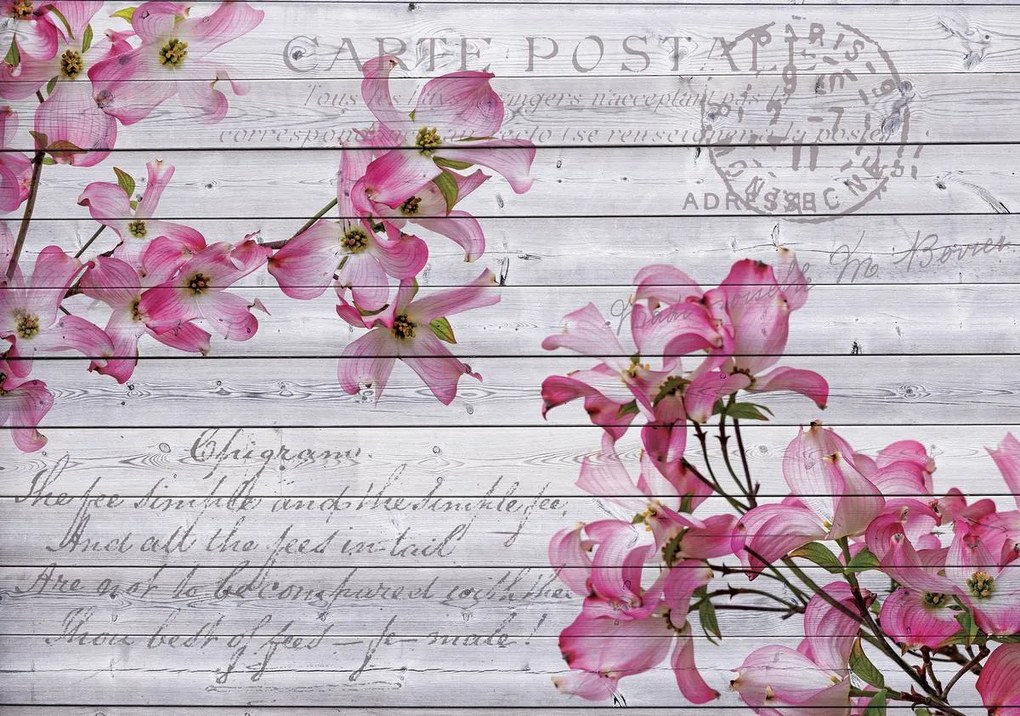 CARTE POSTALE
Tous les Pays étrangers n'acceptant pas la
correspondance au recto (se renseigner à la poste)
PARIS
ADRESSE
Mademoiselle M Bovier
Epigram.
The fee simple and the simple fee,
And all the fees in tail
Are not to be compared with thee
Thou best of fees – fe-male!